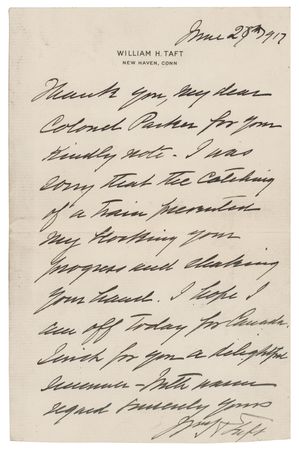 June 28th 1917
WILLIAM H. TAFT
NEW HAVEN, CONN
Thank you, my dear
Colonel Parker for your
kindly note - I was
sorry that the catching
of a train prevented
my stopping your
progress and shaking
your hand. I hope I
am off today for Canada.
I wish for you a delightful
summer - With warm
regard sincerely yours
Wm H Taft